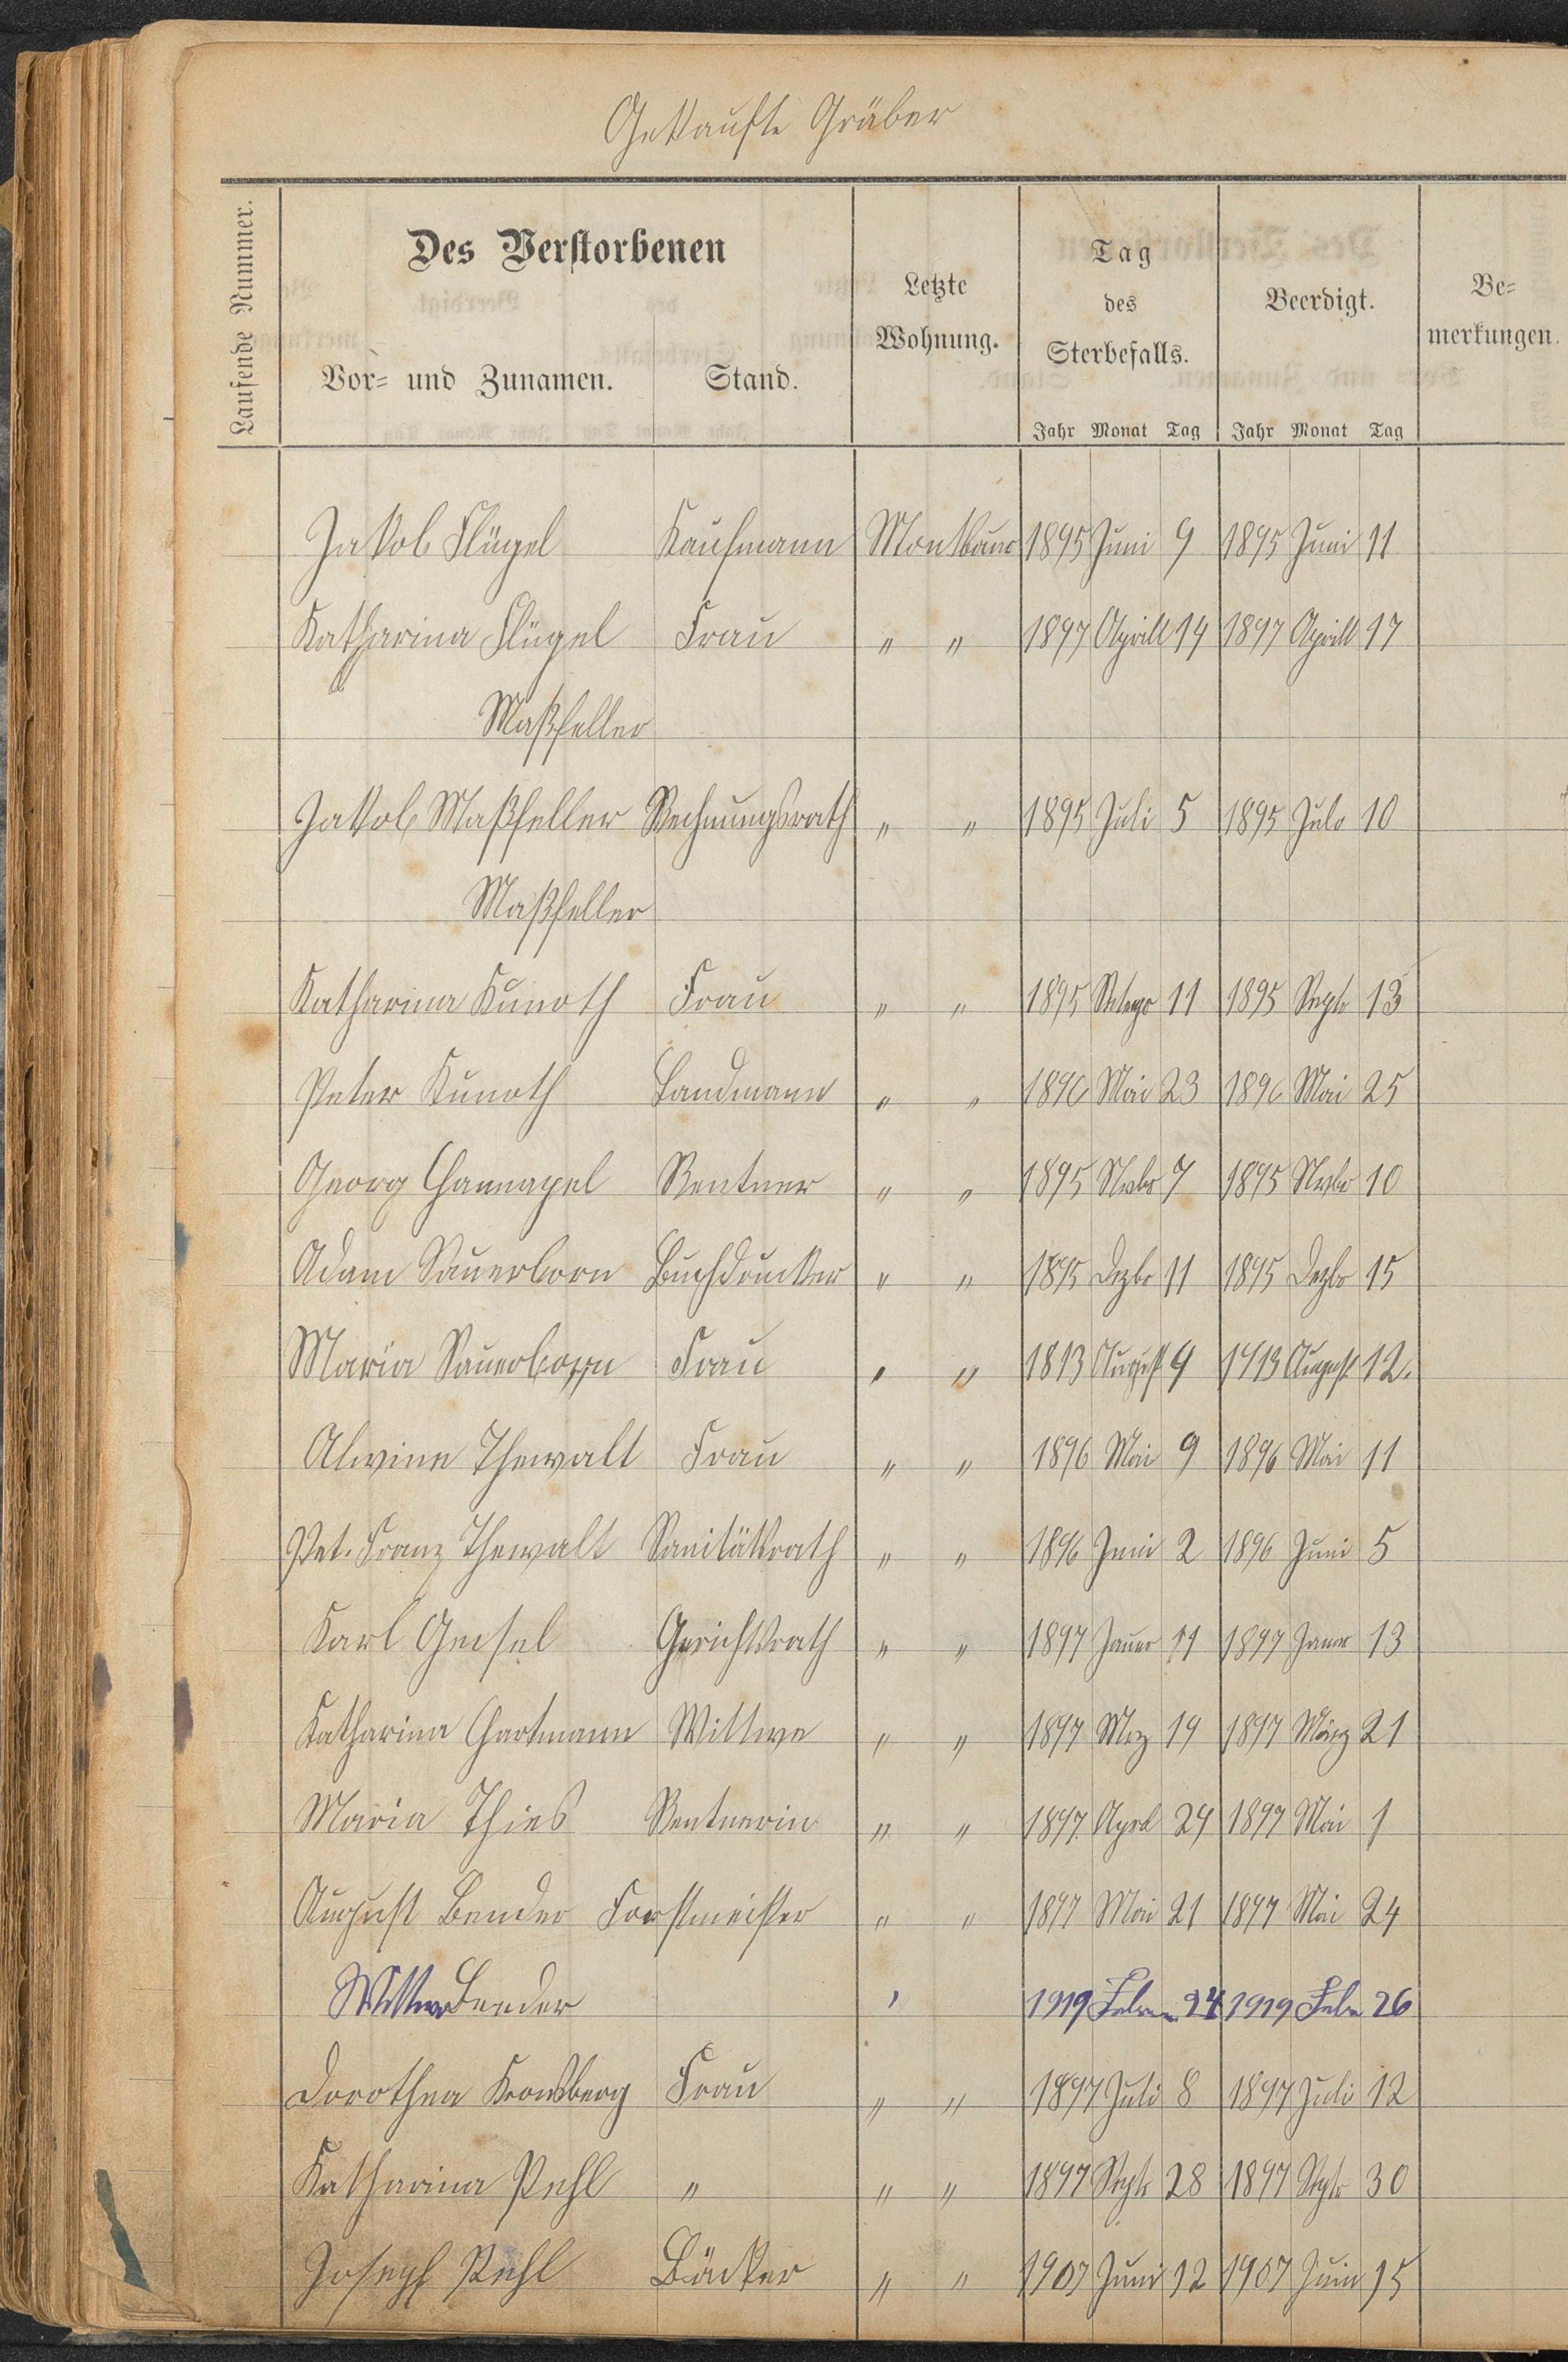 Gekaufte Gräber
Laufende Nummer.
Des Verstorbenen
Vor- und Zunamen.
Stand.
Letzte Wohnung.
Tag des Sterbefalls.
Beerdigt.
Be-merkungen.
Jahr Monat Tag Jahr Monat Tag
Jakob Flügel Kaufmann Montbaur 1895 Juni 9 1895 Juni 11
Katharina Flügel Frau " " 1897 Aprill 14 1897 Aprill 17
Maßfeller
Jakob Maßfeller Rechnungsrath " " 1895 Juli 5 1895 10
Maßfeller
Katharina Kunoth Frau " " 1895 11 1895 Septr 13
Peter Kunoth Landmann " " 1896 Mai 23 1896 Mai 25
Georg Hannapel Rentner " " 1895 Nvbr 7 1895 Nvbr 10
Adam Sauerborn Buchdrucker " " 1895 Dezbr 11 1895 Dezbr 15
Maria Sauerborn Frau " " 1813 August 9 August 12.
Alwine Thewalt Frau " " 1896 Mai 9 1896 Mai 11
Pet. Franz Thewalt Sanitätsrath " " 1896 Juni 2 1896 Juni 5
Karl Geisel Gerichtsrath " " 1897 Januar 11 1897 Januar 13
Katharina Hartmann Wittwe " " 1897 Mrz 19 1897 März 21
Maria Thies Rentnerin " " 1897 Aprl 29 1897 Mai 1
August Bender Forstmeister " " 1897 Mai 21 1897 Mai 24
Wittwe Bender " 1919 24 1919 Febr 26
Dorothea Kronsberg Frau " " 1897 Juli 8 1897 Juli 12
Katharina Pehl " " " 1897 Septr 28 1897 Septr 30
Joseph Pehl Bäcker " " 1907 Juni 12 1907 Juni 15